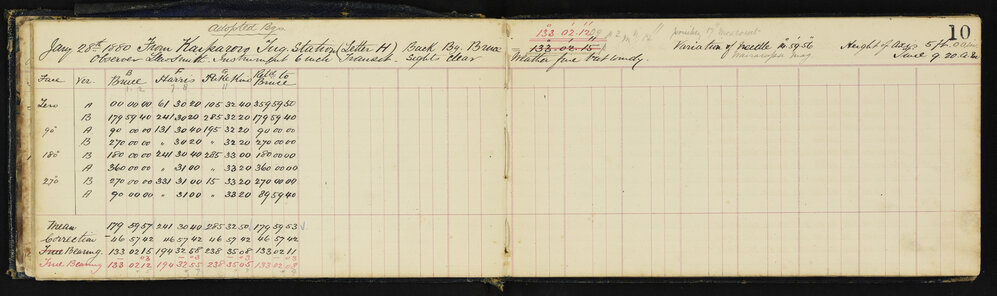 Adopted Bgs
133. 02. 12
10
Jany 28th 1880 From Kaipororo Trig. Station (Letter H) Back Bg. Bruce
133. 02. 15
Variation of Needle
Height of Axis 5 ft.
Observer Llew Smith. Instrument 6 inch Transit. Sights clear
Weather fine but windy.
Time 9.20. a.m.
Face Ver. Bruce Harris Retd to Bruce
Zero A 00 00 00 61 30 20 105 32 40 359 59 50
B 179 59 40 241 30 20 285 32 20 179 59 40
90 A 90 00 00 131 30 40 195 32 20 90 00 00
B 270 00 00 " 30 20 " 32 20 270 00 00
180 B 180 00 00 241 30 40 285 33 00 180 00 00
A 360 00 00 " 31 00 " 33 20 360 00 00
270 B 270 00 00 331 31 00 15 33 20 270 00 00
A 90 00 00 " 31 00 " 33 20 89 59 40
Mean 179 59 57 241 30 40 285 32 50 179 59 53
Correction - 46 57 42 46 57 42 46 57 42 46 57 42
True Bearing. 133 02 15 194 32 58 238 35 08 133 02 11
True Bearing 133 02 12 194 32 55 238 35 05 133 02 08